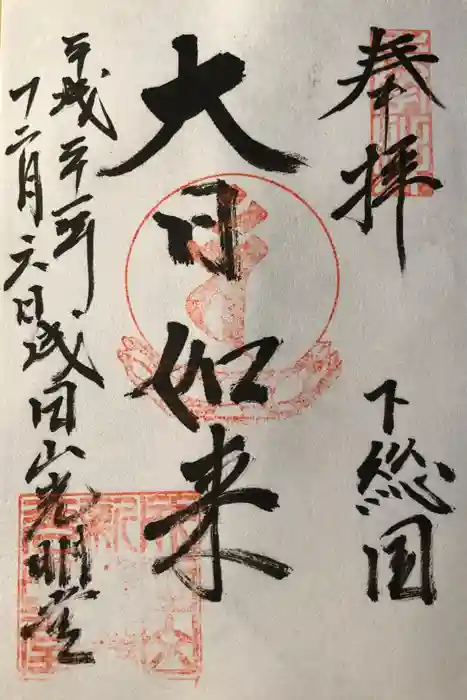 奉拝
下総国
大日如来
平成三十年
十二月六日
成田山光明堂